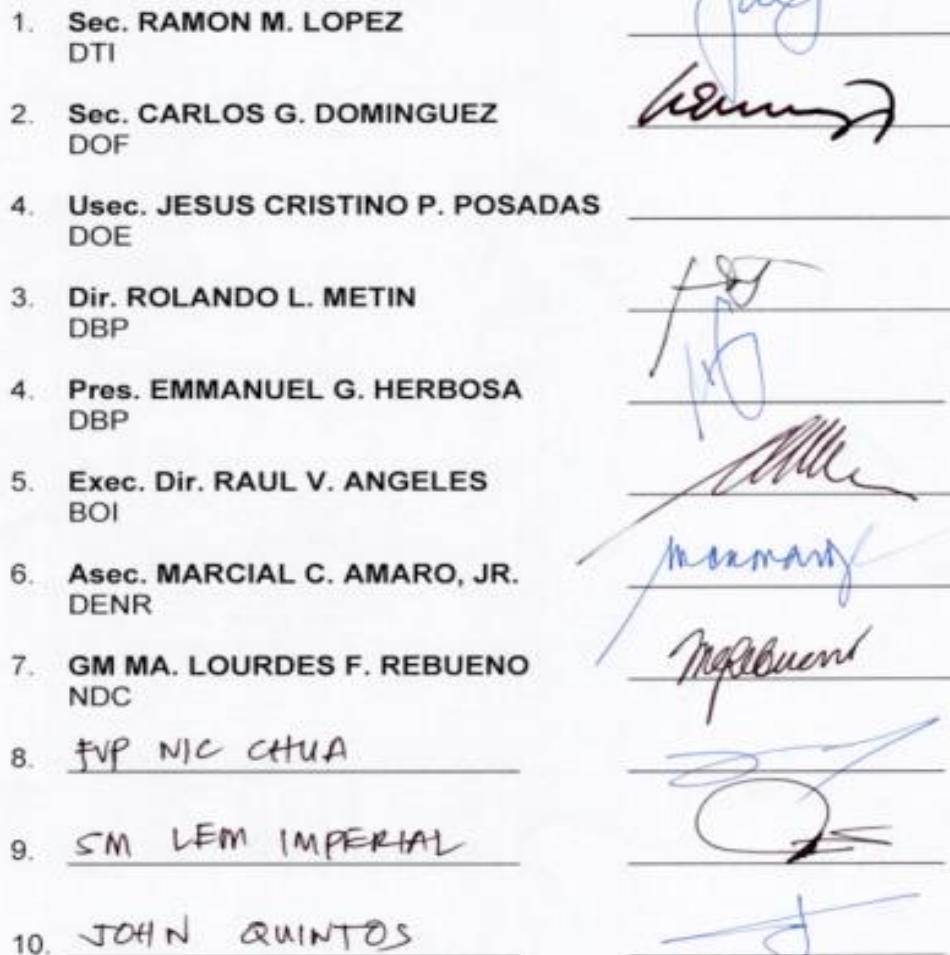 1. Sec. RAMON M. LOPEZ
DTI
2. Sec. CARLOS G. DOMINGUEZ
DOF
4. Usec. JESUS CRISTINO P. POSADAS
DOE
3. Dir. ROLANDO L. METIN
DBP
4. Pres. EMMANUEL G. HERBOSA
DBP
5. Exec. Dir. RAUL V. ANGELES
BOI
6. Asec. MARCIAL C. AMARO, JR.
DENR
7. GM MA. LOURDES F. REBUENO
NDC
8. FVP NIC CHUA
9. SM LEM IMPERIAL
10. JOHN QUINTOS